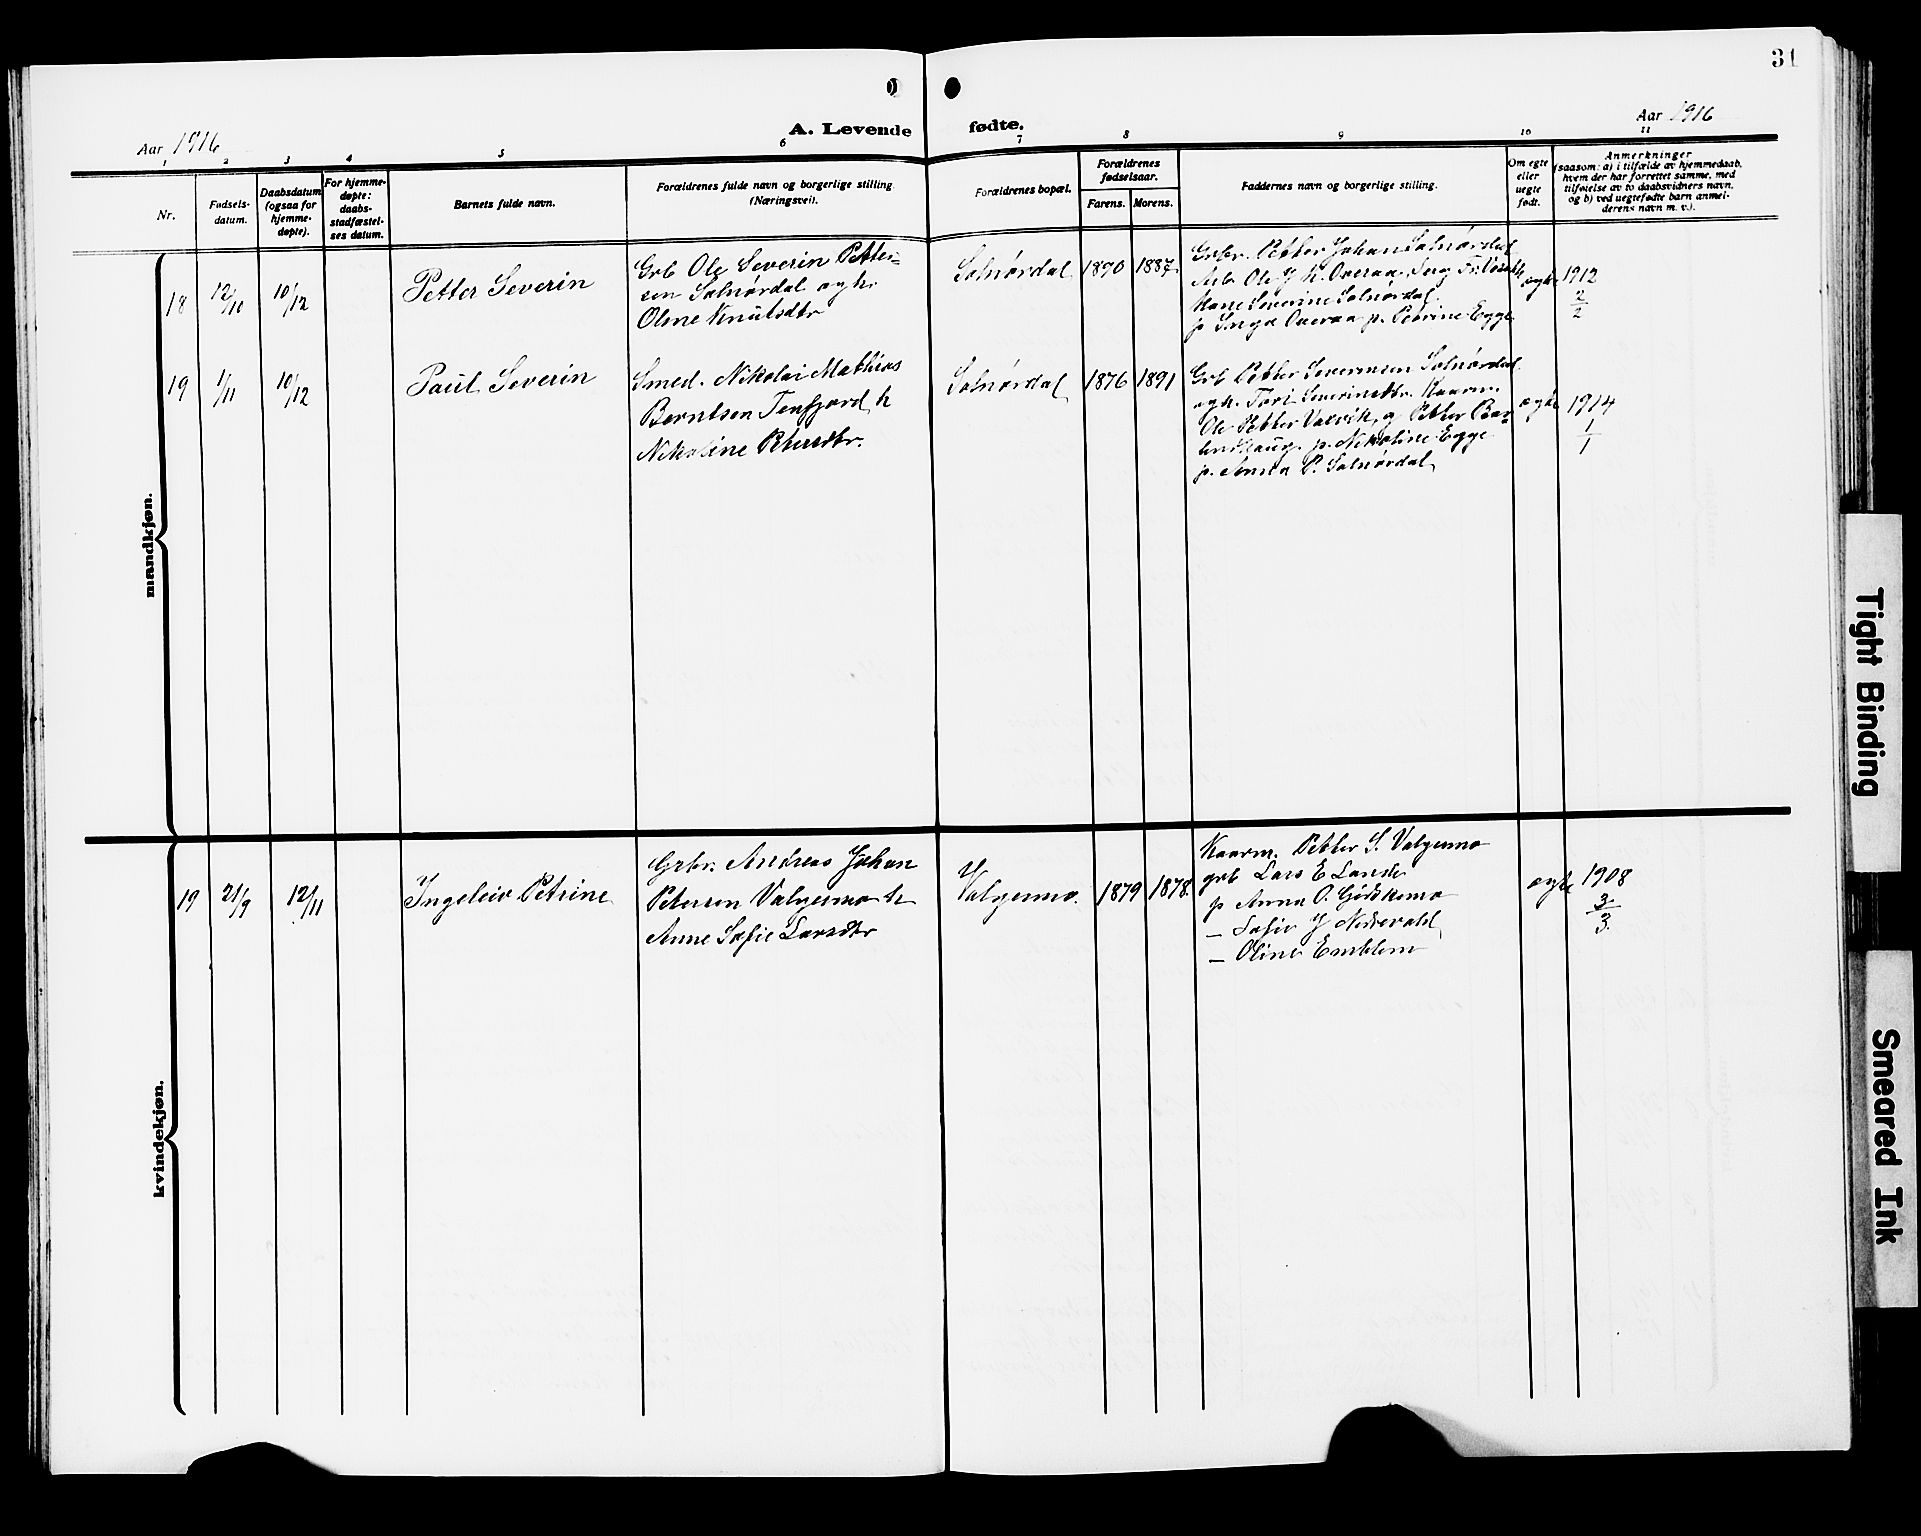 31
Aar 1916
A. Levende fødte.
Aar 1916
1 2 3 4 5 6 7 8 9 10 11
Nr.
Fødsels-
datum.
Daabsdatum
(ogsaa for
hjemme-
døpte).
For hjemme-
døpte:
daabs-
stadfæstel-
ses datum.
Barnets fulde navn.
Forældrenes fulde navn og borgerlige stilling
(Næringsvei).
Forældrenes bopæl.
Forældrenes
fødselsaar.
Farens. Morens.
Faddernes navn og borgerlige stilling.
Om egte
eller
uegte
født.
Anmerkninger
(saasom: a) i tilfælde av hjemmedaab,
hvem der har forrettet samme, med
tilføielse av to daabsvidners navn,
og b) ved uegtefødte barn anmel-
derens navn m. v.).
mandkjøn.
18
12/10
10/12
Petter Severin
Grb Ole Severin Petter=
sen Solnørdal og h.
Oline Knutsdtr
Solnørdal
1890 1887
Grbr. Petter Johan Solnørdal
Arb Ole J K. Overaa,
Hans Severine Solnørdal
p Inga Overaa p. Petrine Egge
egte
1912
2/2
19
1/11
10/12
Paul Severin
Smed. Nikolai Mathias
Berntsen Tenfjord h
Nikoline Petersdtr.
Solnørdal
1876 1891
Grb Petter Severinsen Solnørdal
og h. Tori Severinsdtr. Kaarm.
Ole Petter Valvik, g Petter
p. Nikoline Egge
p. Anna P. Solnørdal
egte
1914
1/1
kvindekjøn.
19
21/9
12/11
Ingeleiv Petrine
Grbr. Andreas Johan
Petersen Valgermo h
Anne Sofie Larsdtr
Valgermo.
1879 1878.
Kaarm. Petter S. Valgermo
grb Lars E Lande
p Anna O. Gjdskemo
— Sofie J Nedrevold
— Oline Emblem
egte
1908
3/3.
Tight Binding
Smeared Ink